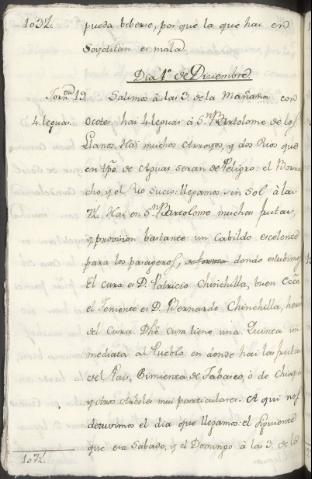 1032. pueda beberse, porque la que hai en
Soyotitan es mala.
Dia 1º de Diciembre
Jorn. 19 Salimos à las 3 de la Mañana con
4. leguas. Ocotes hai 4 leguas à Sn. Bartolome de los
Llanos. Hai muchos Arroyos, y dos Rios que
en tpo. de Aguas seran de Peligro el
y el Rio Sucio: llegamos sin Sol à las
7¼. Hai en Sn. Bartolomo muchas frutas,
y provision bastante un Cabildo excelente
para los pasageros, donde estubimos
El cura es D. Patricio Chinchilla, buen
el Teniente es D. Bernardo Chinchilla,
del Cura. Dho. Cura tiene una Quinta in
mediata al Pueblo en donde hai las frutas
del Pais, Pimienta de Tabasco, ò de Chiapa
y otros Arboles mui particulares. Aqui nos
detuvimos el dia que llegamos: el siguiente
que era Sabado, y el Domingo à las 3 de la
1072.